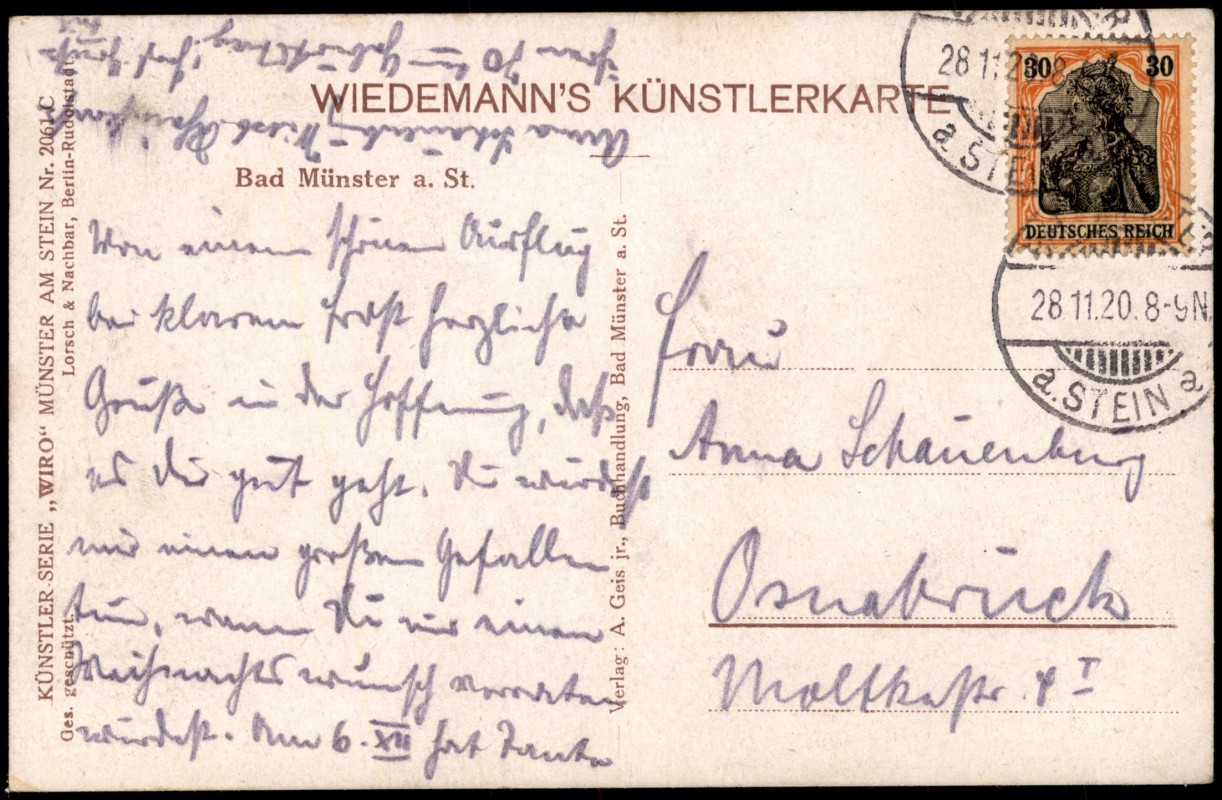 WIEDEMANN'S KÜNSTLERKARTE
Bad Münster a. St.
Von einem schönen Ausflug
bei klarem Frost herzliche
Grüße in der Hoffnung, daß
es Dir gut geht. Du würdest
mir einen großen Gefallen
tun, wenn Du mir einen
Weihnachtswunsch verraten
würdest. Am 6. XII hat Tante
Anna Schauenburg
ihren 70ten Geburtstag!
KÜNSTLER-SERIE „WIRO“ MÜNSTER AM STEIN Nr. 2061 C
Ges. geschützt. Lorsch & Nachbar, Berlin-Rudolstadt.
Verlag: A. Geis jr., Buchhandlung, Bad Münster a. St.
28.11.20. 8
a. STEIN
30 30
DEUTSCHES REICH
28.11.20. 8-9N.
a. STEIN a
Frau
Anna Schauenburg
Osnabrück
Moltkestr. 4 I